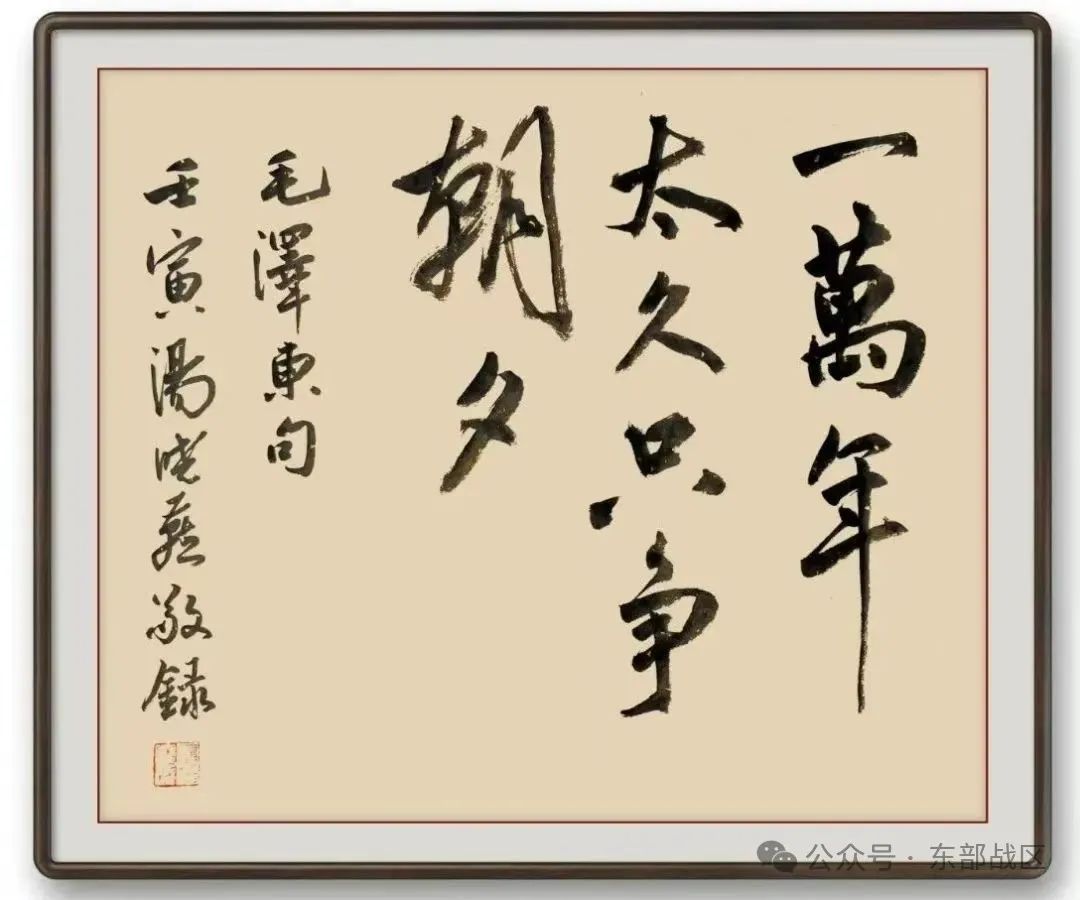 一萬年
太久只争
朝夕
毛澤東句
壬寅湯曉燕敬録
公众号·东部战区